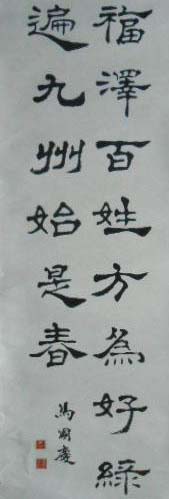 福澤百姓方為好綠
遍九州始是春
馬國慶